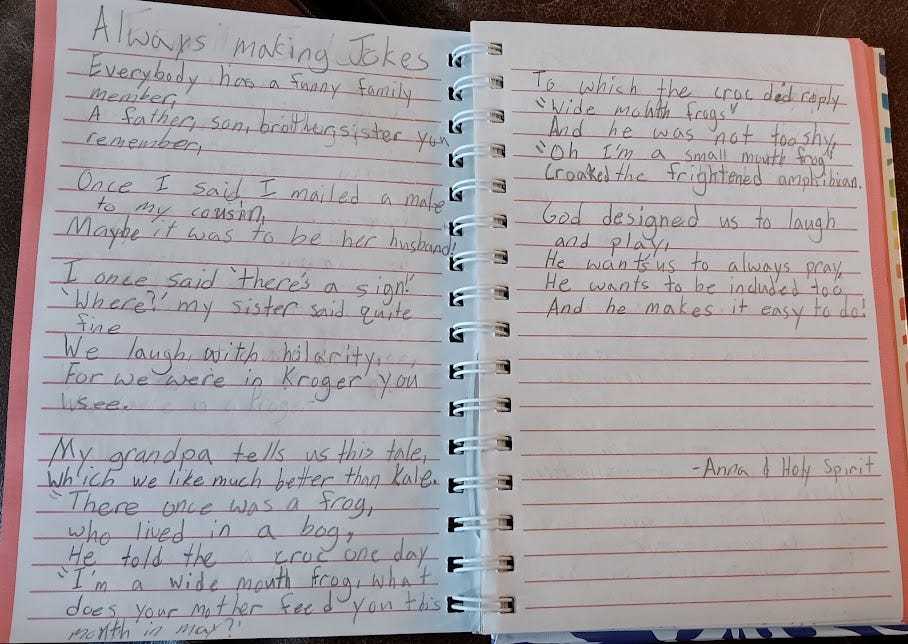 Always making Jokes
Everybody has a funny family
member,
A father, son, brother, sister you
remember,
Once I said I mailed a male
to my cousin,
Maybe it was to be her husband!
I once said "there's a sign!"
"Where?" my sister said quite
fine
We laugh, with hilarity,
For we were in Kroger you
see.
My grandpa tells us this tale,
Which we like much better than kale.
"There once was a frog,
who lived in a bog,
He told the croc one day
"I'm a wide mouth frog, what
does your mother feed you this
month in may?"
To which the croc did reply
"Wide mouth frogs"
And he was not too shy,
"Oh I'm a small mouth frog"
Croaked the frightened amphibian.
God designed us to laugh
and play,
He wants us to always pray,
He wants to be included too,
And he makes it easy to do!
-Anna & Holy Spirit